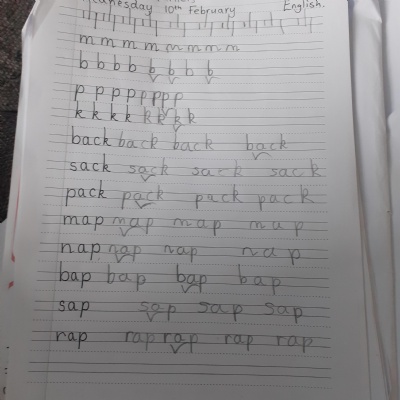 Wednesday 10th February English.
m m m m m m m m
b b b b b b b b
p p p p p p p p
k k k k k k k k
back back back back
sack sack sack sack
pack pack pack pack
map map map map
nap nap nap nap
bap bap bap bap
sap sap sap sap
rap rap rap rap rap